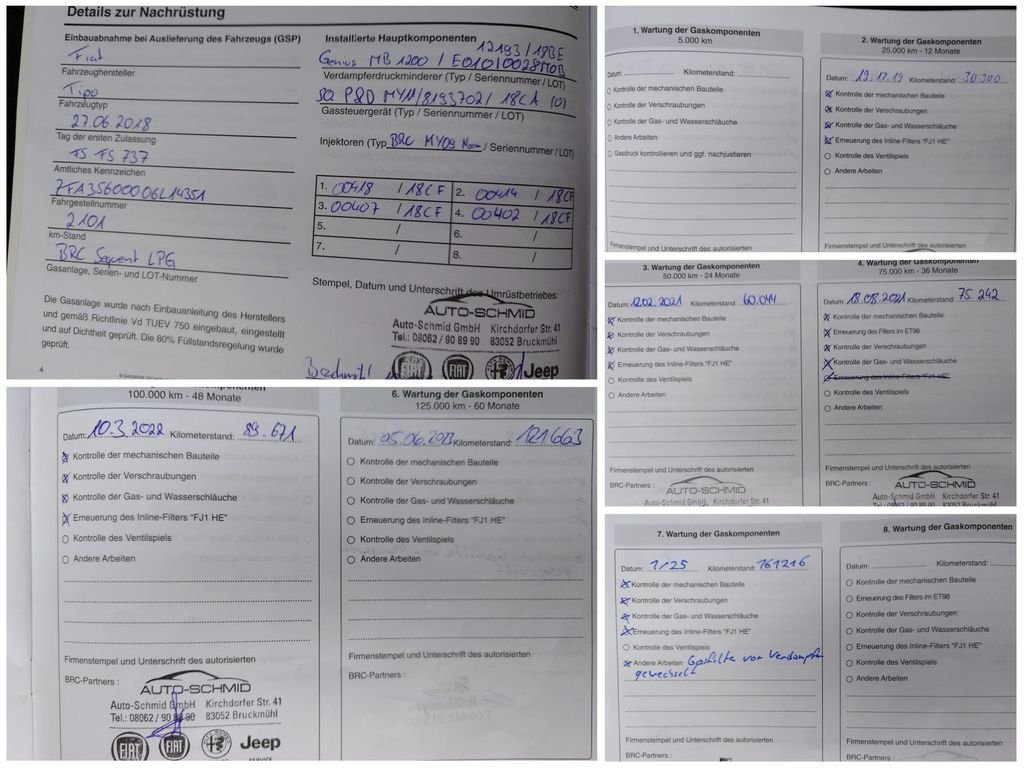 Details zur Nachrüstung
Einbauabnahme bei Auslieferung des Fahrzeugs (GSP)
Fiat
Fahrzeughersteller
Tipo
Fahrzeugtyp
27.06 2018
Tag der ersten Zulassung
TS FS 737
Amtliches Kennzeichen
ZFA35600006L14351
Fahrgestellnummer
2101
km-Stand
BRC Sequent LPG
Gasanlage, Serien- und LOT-Nummer
Die Gasanlage wurde nach Einbauanleitung des Herstellers
und gemäß Richtlinie Vd TUEV 750 eingebaut, eingestellt
und auf Dichtheit geprüft. Die 80% Füllstandsregelung wurde
geprüft.
4
Installierte Hauptkomponenten
12193 / 18BE
Genius MB 1200 / E01010028MOB
Verdampferdruckminderer (Typ / Seriennummer / LOT)
SQ P&D MY11/8193702/ 18CA (0)
Gassteuergerät (Typ / Seriennummer / LOT)
Injektoren (Typ BRC MY09 / Seriennummer / LOT)
1. 00418 / 18CF 2. 00414 / 18CF
3. 00407 / 18CF 4. 00402 / 18CF
5. / 6. /
7. / 8.
Stempel, Datum und Unterschrift des Umrüstbetriebes:
AUTO-SCHMID
Auto-Schmid GmbH Kirchdorfer Str. 41
Tel.: 08062 / 90 89 90 83052 Bruckmühl
FIAT Jeep
1. Wartung der Gaskomponenten
5.000 km
Datum: Kilometerstand:
Kontrolle der mechanischen Bauteile
Kontrolle der Verschraubungen
Kontrolle der Gas- und Wasserschläuche
Andere Arbeiten
Gasdruck kontrollieren und ggf. nachjustieren
Firmenstempel und Unterschrift des autorisierten
2. Wartung der Gaskomponenten
25.000 km - 12 Monate
Datum: 19.12.19 Kilometerstand: 30.300
Kontrolle der mechanischen Bauteile
Kontrolle der Verschraubungen
Kontrolle der Gas- und Wasserschläuche
Erneuerung des Inline-Filters "FJ1 HE"
Kontrolle des Ventilspiels
Andere Arbeiten
Firmenstempel und Unterschrift des autorisierten
3. Wartung der Gaskomponenten
50.000 km - 24 Monate
Datum: 12.02.2021 Kilometerstand: 60.044
Kontrolle der mechanischen Bauteile
Kontrolle der Verschraubungen
Kontrolle der Gas- und Wasserschläuche
Erneuerung des Inline-Filters "FJ1 HE"
Kontrolle des Ventilspiels
Andere Arbeiten
Firmenstempel und Unterschrift des autorisierten
BRC-Partners :
AUTO-SCHMID
Auto-Schmid GmbH Kirchdorfer Str. 41
4. Wartung der Gaskomponenten
75.000 km - 36 Monate
Datum: 18.08.2021 Kilometerstand: 75.242
Kontrolle der mechanischen Bauteile
Erneuerung des Filters im ET98
Kontrolle der Verschraubungen
Kontrolle der Gas- und Wasserschläuche
Erneuerung des Inline-Filters "FJ1 HE"
Kontrolle des Ventilspiels
Andere Arbeiten
Firmenstempel und Unterschrift des autorisierten
BRC-Partners :
AUTO-SCHMID
Auto-Schmid GmbH Kirchdorfer Str. 41
Tel.: 08062 / 90 89 90 83052 Bruckmühl
Wartung der Gaskomponenten
100.000 km - 48 Monate
Datum: 10.3.2022 Kilometerstand: 89.671
Kontrolle der mechanischen Bauteile
Kontrolle der Verschraubungen
Kontrolle der Gas- und Wasserschläuche
Erneuerung des Inline-Filters "FJ1 HE"
Kontrolle des Ventilspiels
Andere Arbeiten
Firmenstempel und Unterschrift des autorisierten
BRC-Partners :
AUTO-SCHMID
Auto-Schmid GmbH Kirchdorfer Str. 41
Tel.: 08062 / 90 89 90 83052 Bruckmühl
FIAT FIAT Jeep
SERVICE
6. Wartung der Gaskomponenten
125.000 km - 60 Monate
Datum: 05.06.2023 Kilometerstand: 121663
Kontrolle der mechanischen Bauteile
Kontrolle der Verschraubungen
Kontrolle der Gas- und Wasserschläuche
Erneuerung des Inline-Filters "FJ1 HE"
Kontrolle des Ventilspiels
Andere Arbeiten
Firmenstempel und Unterschrift des autorisierten
BRC-Partners :
7. Wartung der Gaskomponenten
Datum: 1/25 Kilometerstand: 161216
Kontrolle der mechanischen Bauteile
Kontrolle der Verschraubungen
Kontrolle der Gas- und Wasserschläuche
Erneuerung des Inline-Filters "FJ1 HE"
Kontrolle des Ventilspiels
Andere Arbeiten Gasfilter vor Verdampfer
gewechselt
Firmenstempel und Unterschrift des autorisierten
BRC-Partners :
8. Wartung der Gaskomponenten
Datum: Kilometerstand:
Kontrolle der mechanischen Bauteile
Erneuerung des Filters im ET98
Kontrolle der Verschraubungen
Kontrolle der Gas- und Wasserschläuche
Erneuerung des Inline-Filters "FJ1 HE"
Kontrolle des Ventilspiels
Andere Arbeiten
Firmenstempel und Unterschrift des autorisierten
BRC-Partners :